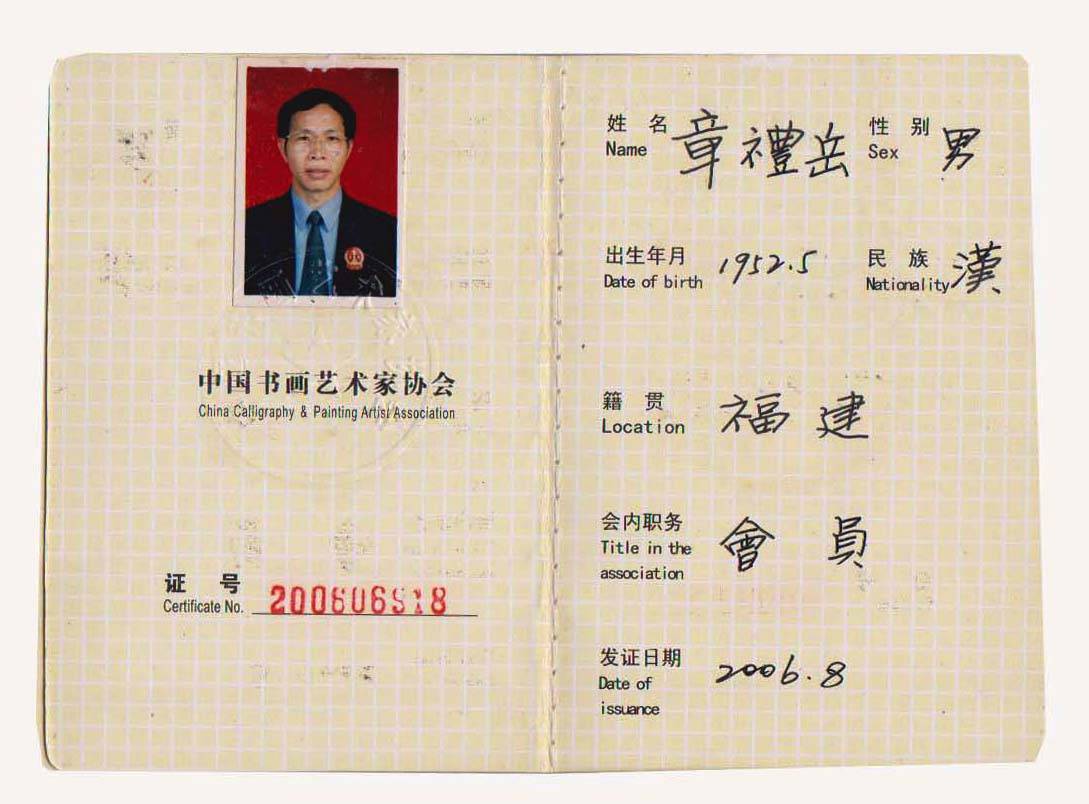 中国书画艺术家协会
China Calligraphy & Painting Artist Association
证 号
Certificate No. 200606918
姓 名 章禮岳 性 别 男
Name Sex
出生年月 1952.5 民 族 漢
Date of birth Nationality
籍 贯 福建
Location
会内职务 會員
Title in the
association
发证日期 2006.8
Date of
issuance